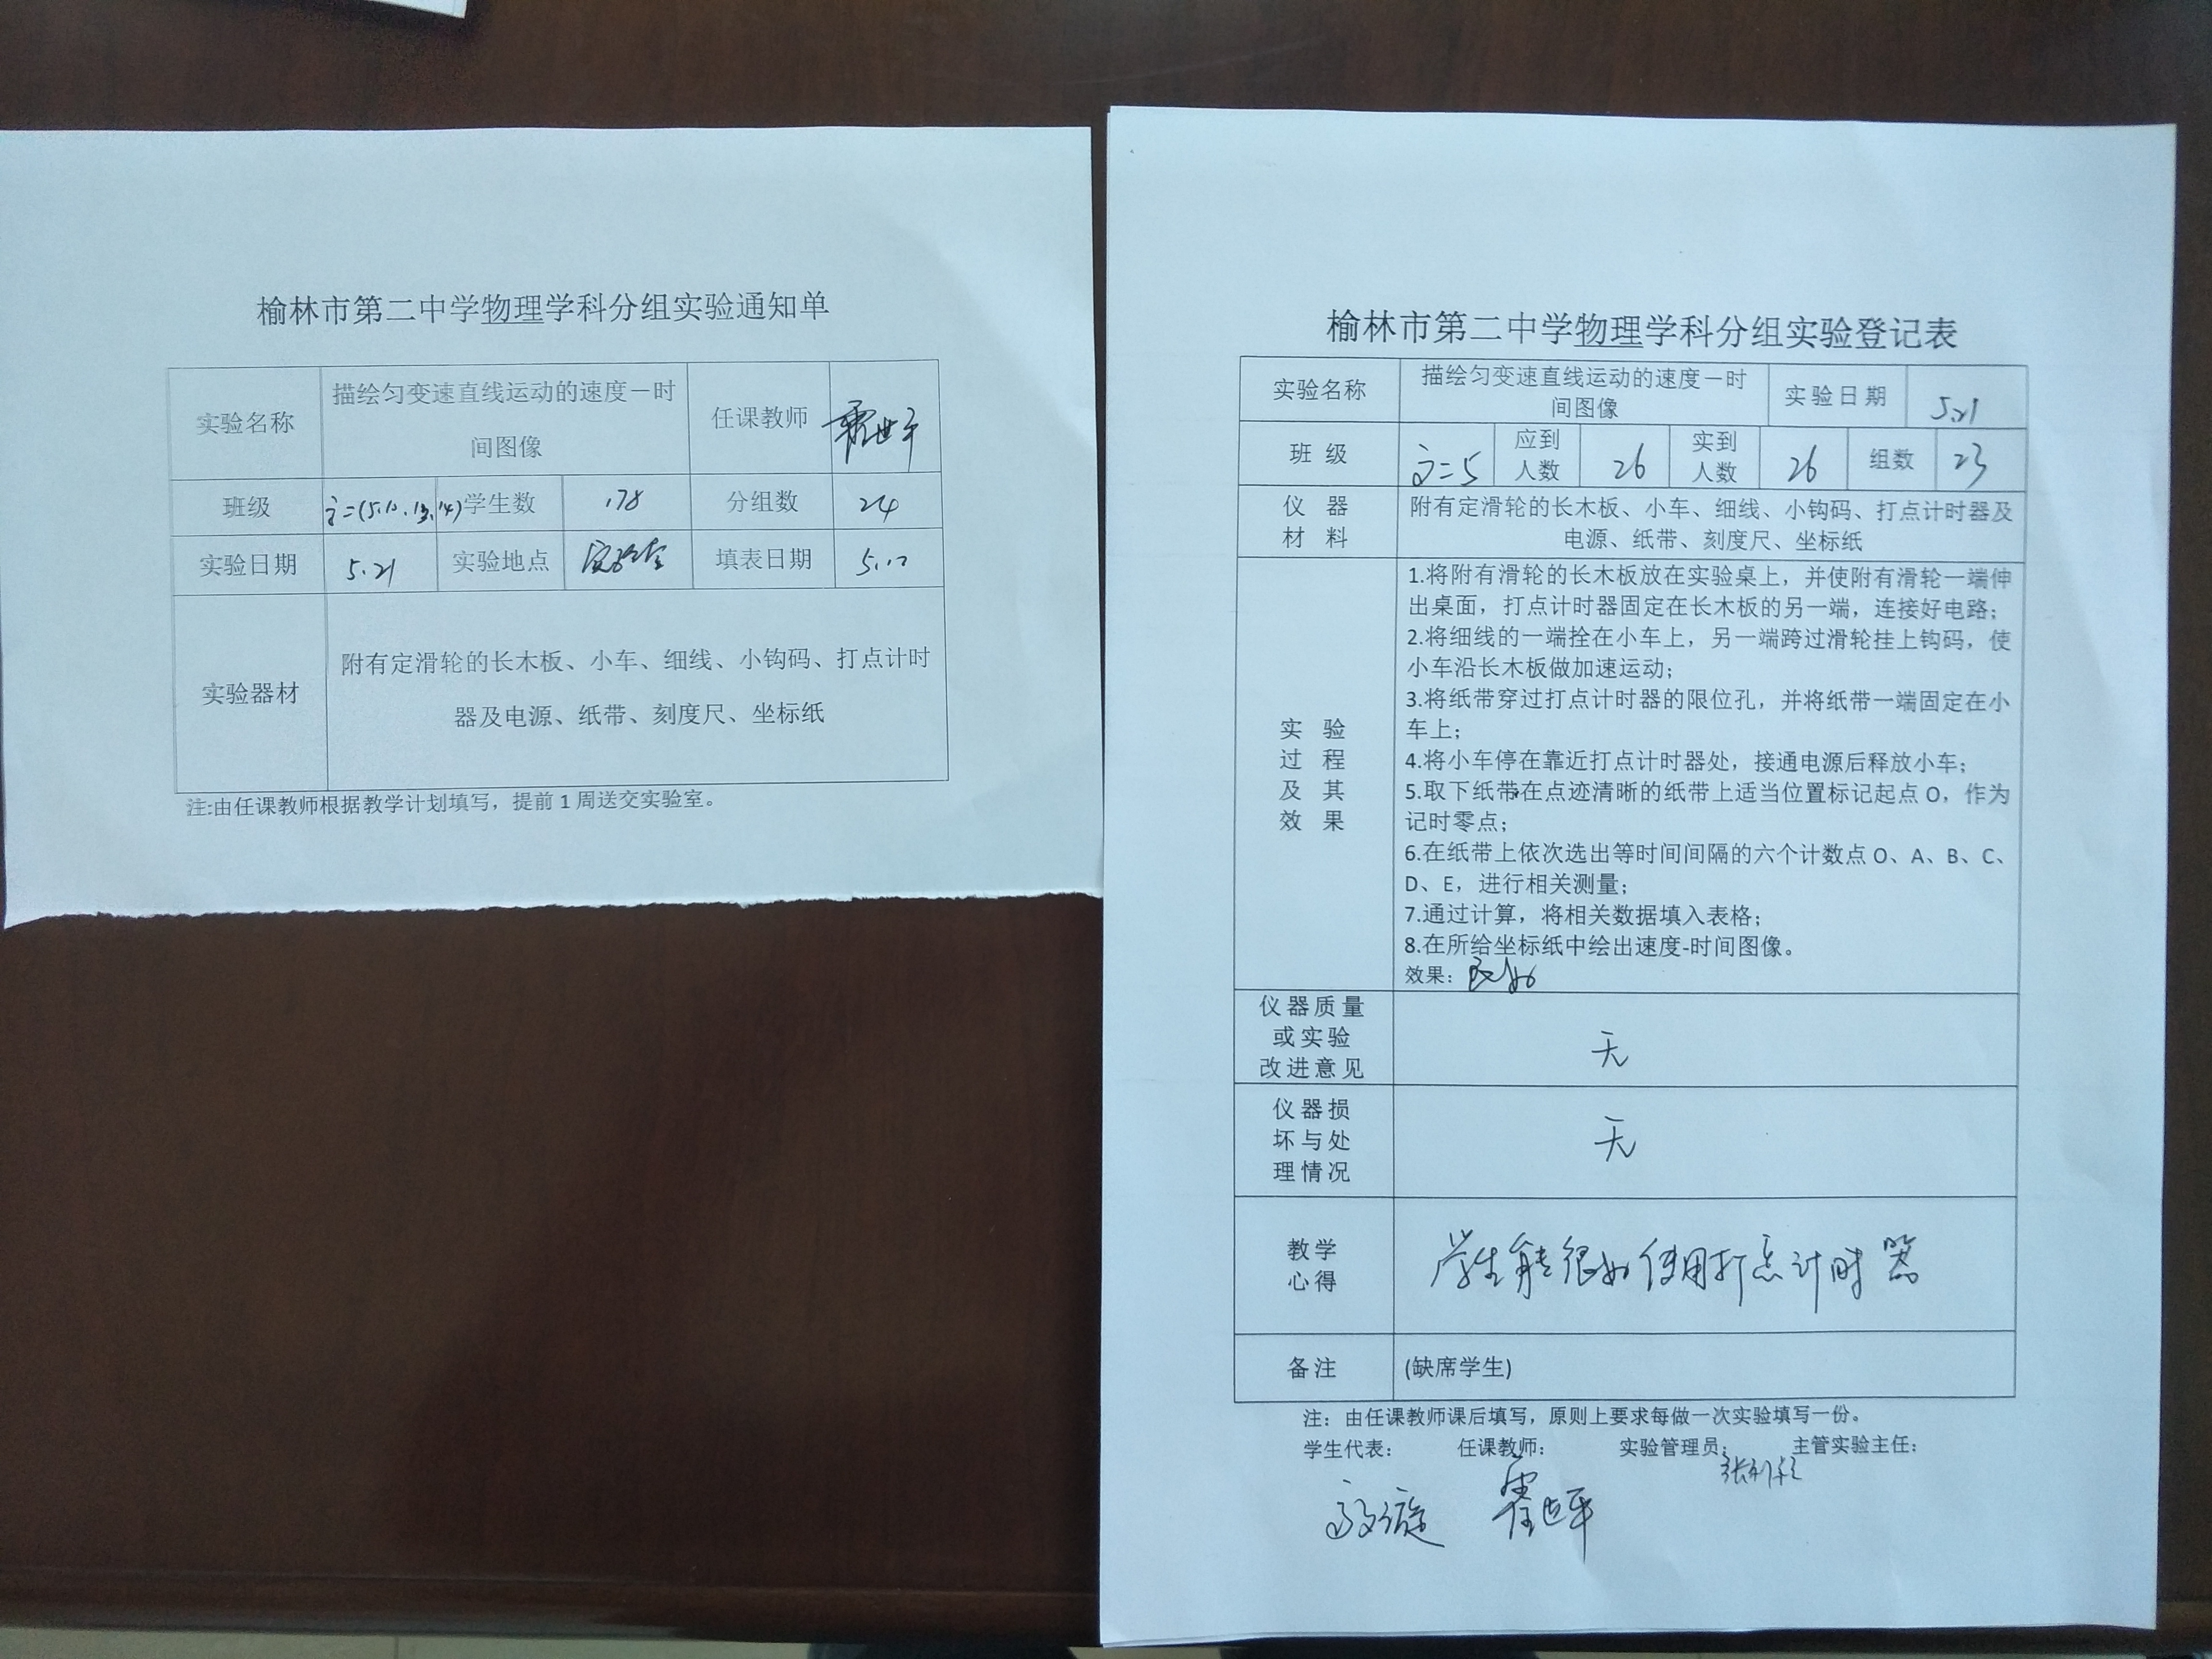 榆林市第二中学物理学科分组实验通知单
实验名称
描绘匀变速直线运动的速度－时
间图像
任课教师
班级
学生数
178
分组数
24
实验日期
5.21
实验地点
实验室
填表日期
实验器材
附有定滑轮的长木板、小车、细线、小钩码、打点计时
器及电源、纸带、刻度尺、坐标纸
注:由任课教师根据教学计划填写，提前1周送交实验室。
榆林市第二中学物理学科分组实验登记表
实验名称
描绘匀变速直线运动的速度－时
间图像
实验日期
5.21
班 级
应到
人数
26
实到
人数
26
组数
23
仪 器
材 料
附有定滑轮的长木板、小车、细线、小钩码、打点计时器及
电源、纸带、刻度尺、坐标纸
实 验
过 程
及 其
效 果
1.将附有滑轮的长木板放在实验桌上，并使附有滑轮一端伸
出桌面，打点计时器固定在长木板的另一端，连接好电路；
2.将细线的一端拴在小车上，另一端跨过滑轮挂上钩码，使
小车沿长木板做加速运动；
3.将纸带穿过打点计时器的限位孔，并将纸带一端固定在小
车上；
4.将小车停在靠近打点计时器处，接通电源后释放小车；
5.取下纸带在点迹清晰的纸带上适当位置标记起点O，作为
记时零点；
6.在纸带上依次选出等时间间隔的六个计数点O、A、B、C、
D、E，进行相关测量；
7.通过计算，将相关数据填入表格；
8.在所给坐标纸中绘出速度-时间图像。
效果：良好
仪器质量
或实验
改进意见
无
仪器损
坏与处
理情况
无
教学
心得
学生能很好使用打点计时器
备注
(缺席学生)
注：由任课教师课后填写，原则上要求每做一次实验填写一份。
学生代表： 任课教师： 实验管理员： 主管实验主任：